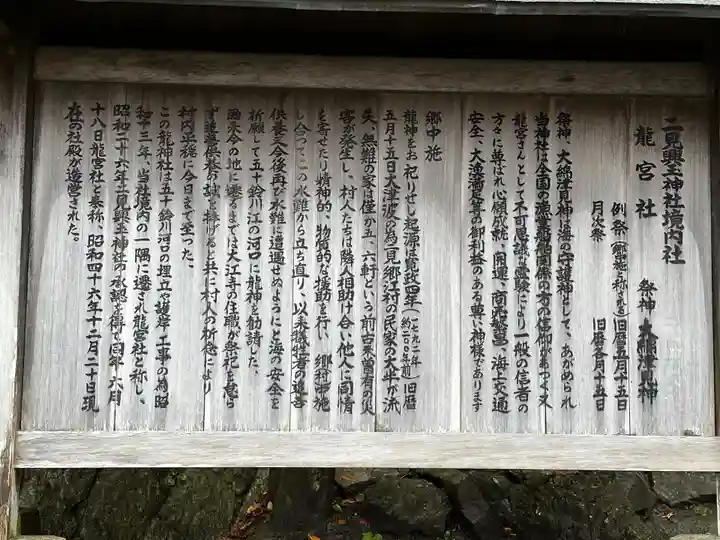 二見興玉神社境内社
龍宮社　祭神　大綿津見神
例祭（郷中施と称へる）旧暦五月十五日
月次祭　旧暦各月十五日
祭神、大綿津見神は海の守護神として、あがめられ
当神社は全国の漁業船舶関係の方の信仰があつく又
龍宮さんとして不可思議な霊験により一般の信者の
方々に尊ばれ心願成就、開運、商売繁昌、海上交通
安全、大漁満足等の御利益のある尊い神様であります
郷中施
龍神をお祀りせし起源は寛政四年（一七九二年 約二〇〇年前）旧暦
五月十五日大津波の為二見郷江村の民家の大半が流
失、無難の家は僅か五、六軒という前古未曾有の災
害が発生し、村人たちは隣人相助け合い他人に同情
を寄せたり精神的、物質的な援助を行い　郷中施
し合つてこの水難から立ち直り、以来犠牲者の追善
供養三会後再び水難に遭遇せぬようにと海の安全を
祈願して五十鈴川江の河口に龍神を勧請した、
爾来今の地に遷るまでは大江寺の住職が祭祀を怠ら
ず追善供養の誠を捧げると共に村人の祈念により
村内平穏に今日まで至つた、
この龍神社は五十鈴川河口の埋立や護岸工事の為昭
和十三年、当社境内の一隅に遷され龍宮社と称し、
昭和二十六年二見興玉神社の承認を得て同年六月
十八日龍宮社と奉称、昭和四十六年十二月二十日現
在の社殿が造営された。